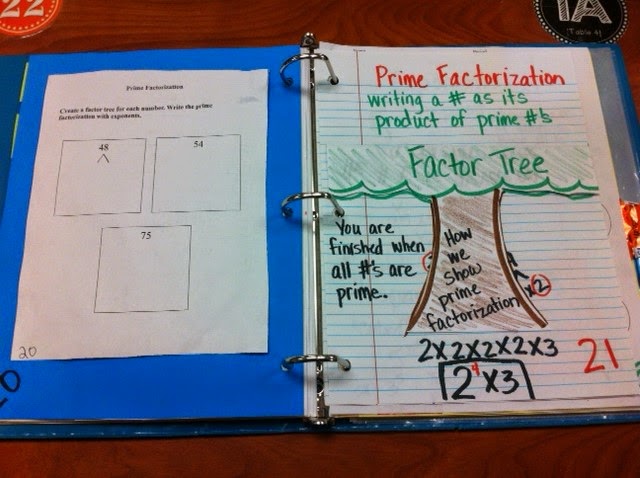 22
1A
(Table 4)
Prime Factorization
Create a factor tree for each number. Write the prime
factorization with exponents.
48
54
75
20
Prime Factorization
writing a # as its
product of prime #'s
Factor Tree
You are
finished when
all #'s are
prime.
How
we
show
prime
factorization
x 2
2x2x2x2x3
2⁴x3
21